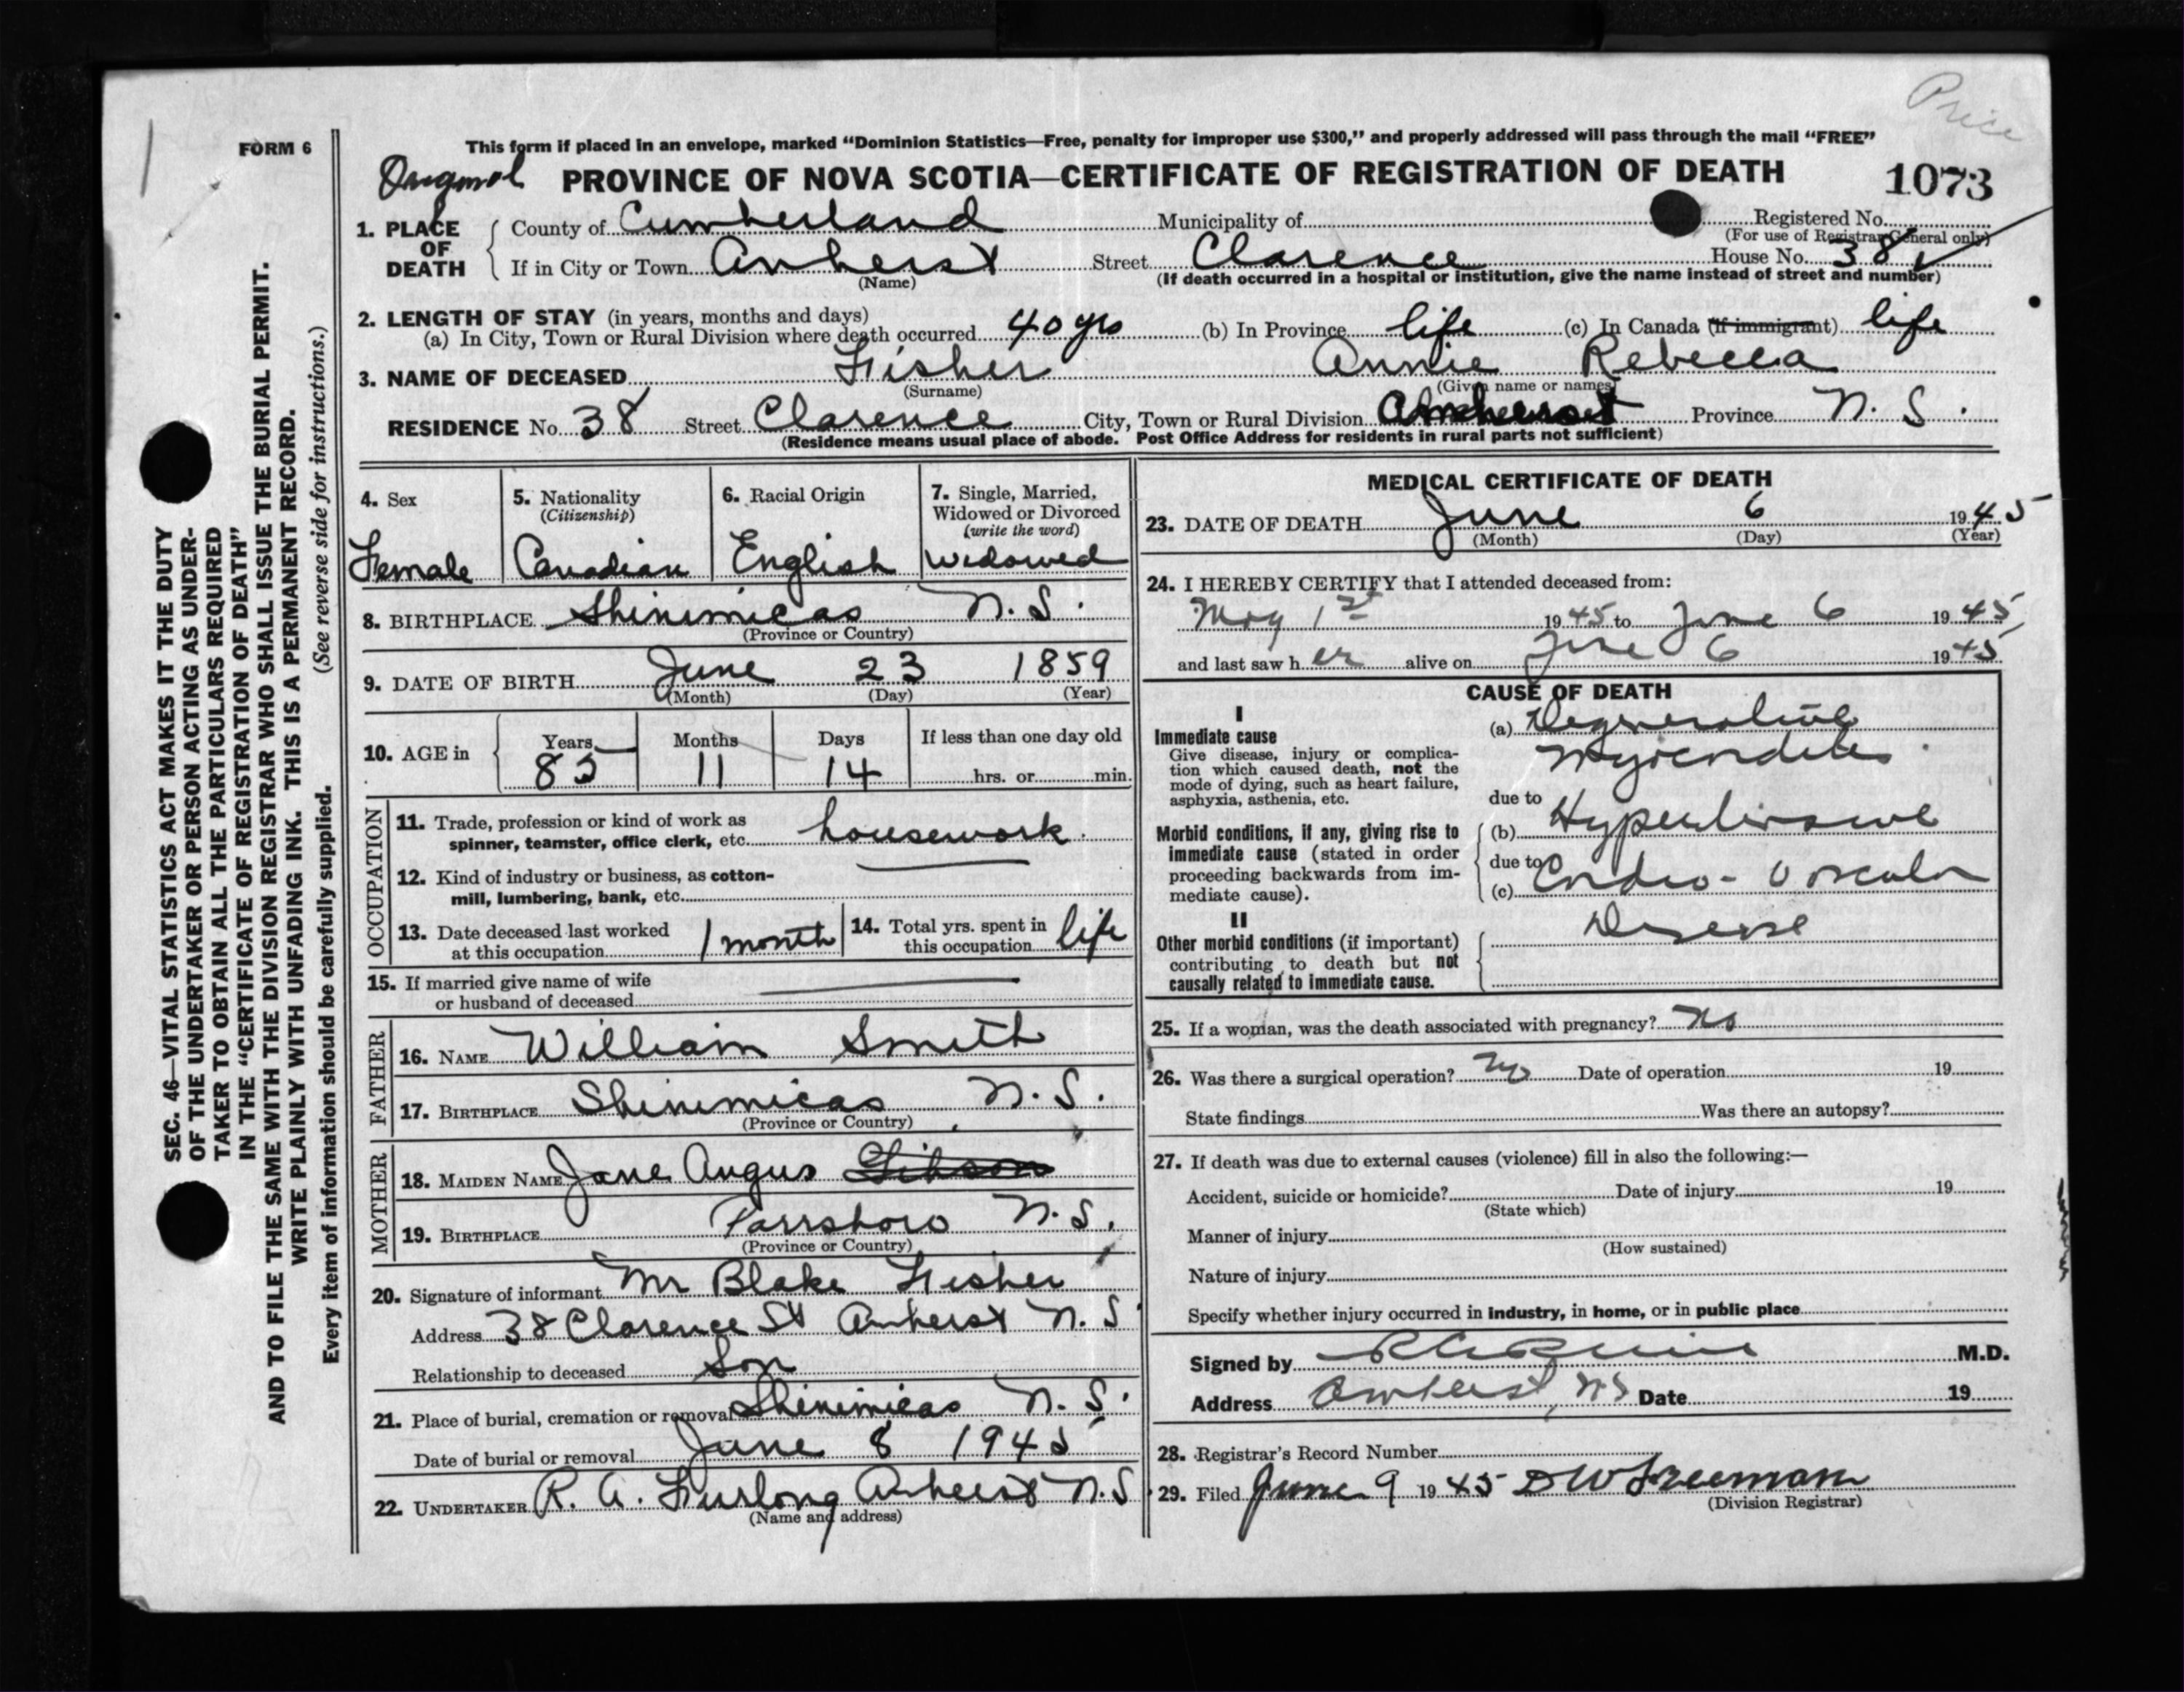 Price
FORM 6
This form if placed in an envelope, marked “Dominion Statistics—Free, penalty for improper use $300,” and properly addressed will pass through the mail “FREE”
Original PROVINCE OF NOVA SCOTIA—CERTIFICATE OF REGISTRATION OF DEATH 1073
1. PLACE OF DEATH
County of Cumberland Municipality of Registered No.
(For use of Registrar General only)
If in City or Town Amherst Street Clarence House No. 38
(Name) (If death occurred in a hospital or institution, give the name instead of street and number)
2. LENGTH OF STAY (in years, months and days)
(a) In City, Town or Rural Division where death occurred 40 yrs (b) In Province life (c) In Canada (if immigrant) life
3. NAME OF DECEASED Fisher Annie Rebecca
(Surname) (Given name or names)
RESIDENCE No. 38 Street Clarence City, Town or Rural Division Amherst Province N. S.
(Residence means usual place of abode. Post Office Address for residents in rural parts not sufficient)
4. Sex
Female
5. Nationality
(Citizenship)
Canadian
6. Racial Origin
English
7. Single, Married,
Widowed or Divorced
(write the word)
Widowed
8. BIRTHPLACE Shinimicas N. S.
(Province or Country)
9. DATE OF BIRTH June 23 1859
(Month) (Day) (Year)
10. AGE in Years Months Days If less than one day old
85 11 14 hrs. or min.
OCCUPATION
11. Trade, profession or kind of work as
spinner, teamster, office clerk, etc. housework
12. Kind of industry or business, as cotton-
mill, lumbering, bank, etc.
13. Date deceased last worked
at this occupation 1 month
14. Total yrs. spent in
this occupation life
15. If married give name of wife
or husband of deceased
FATHER
16. NAME William Smith
17. BIRTHPLACE Shinimicas N. S.
(Province or Country)
MOTHER
18. MAIDEN NAME Jane Angus Gibson
19. BIRTHPLACE Parrsboro N. S.
(Province or Country)
20. Signature of informant Mr Blake Fisher
Address 38 Clarence St Amherst N. S
Relationship to deceased Son
21. Place of burial, cremation or removal Shinimicas N. S.
Date of burial or removal June 8 1945
22. UNDERTAKER R. A. Furlong Amherst N. S
(Name and address)
MEDICAL CERTIFICATE OF DEATH
23. DATE OF DEATH June 6 1945
(Month) (Day) (Year)
24. I HEREBY CERTIFY that I attended deceased from:
May 1st 1945 to June 6 1945
and last saw her alive on June 6 1945
CAUSE OF DEATH
I
Immediate cause
Give disease, injury or complica-
tion which caused death, not the
mode of dying, such as heart failure,
asphyxia, asthenia, etc.
(a) Degenerative
Myocarditis
due to
Morbid conditions, if any, giving rise to
immediate cause (stated in order
proceeding backwards from im-
mediate cause).
(b) Hypertensive
due to
(c) Cardio-Vascular
II
Disease
Other morbid conditions (if important)
contributing to death but not
causally related to immediate cause.
25. If a woman, was the death associated with pregnancy? No
26. Was there a surgical operation? No Date of operation 19
State findings Was there an autopsy?
27. If death was due to external causes (violence) fill in also the following:—
Accident, suicide or homicide? Date of injury 19
(State which)
Manner of injury
(How sustained)
Nature of injury
Specify whether injury occurred in industry, in home, or in public place
Signed by M.D.
Address Amherst, N S Date 19
28. Registrar's Record Number
29. Filed June 9 1945 D W Freeman
(Division Registrar)
SEC. 46—VITAL STATISTICS ACT MAKES IT THE DUTY
OF THE UNDERTAKER OR PERSON ACTING AS UNDER-
TAKER TO OBTAIN ALL THE PARTICULARS REQUIRED
IN THE “CERTIFICATE OF REGISTRATION OF DEATH”
AND TO FILE THE SAME WITH THE DIVISION REGISTRAR WHO SHALL ISSUE THE BURIAL PERMIT.
WRITE PLAINLY WITH UNFADING INK. THIS IS A PERMANENT RECORD.
Every item of information should be carefully supplied. (See reverse side for instructions.)